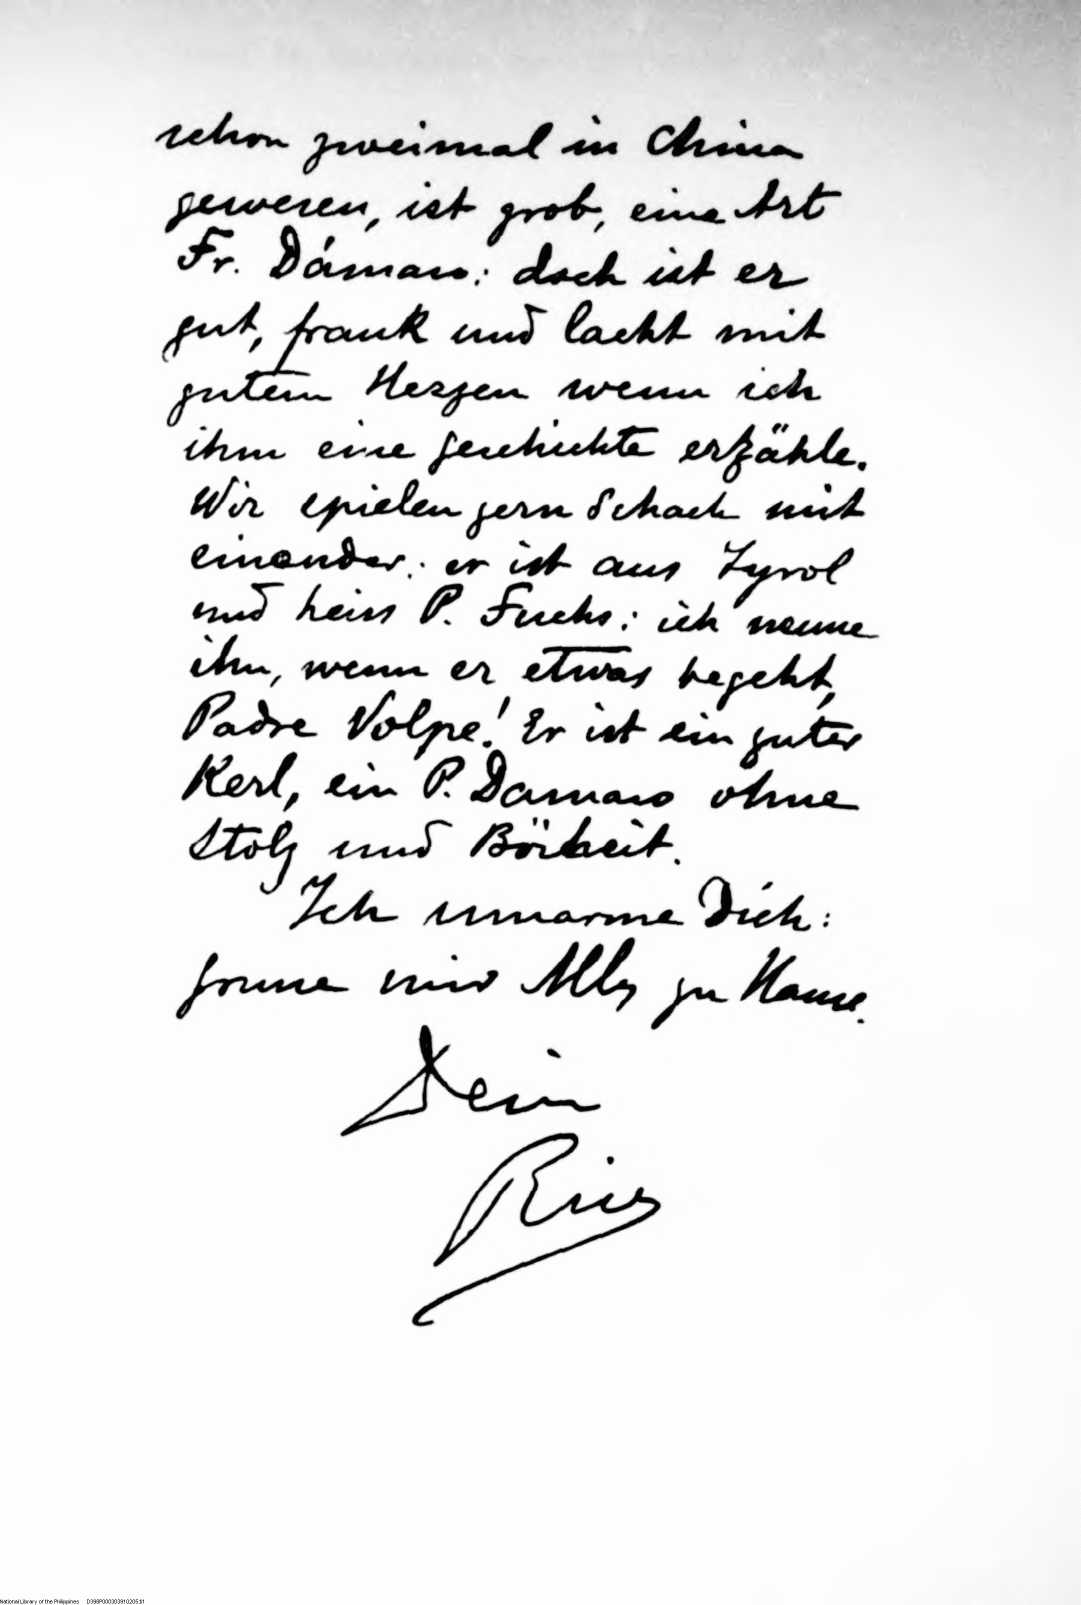 schon zweimal in China
gewesen, ist grob, eine Art
Fr. Dámaso: doch ist er
gut, frank und lacht mit
gutem Herzen wenn ich
ihm eine Geschichte erzähle.
Wir spielen gern Schach mit
einander: er ist aus Tyrol
und heiss P. Fuchs: ich nenne
ihn, wenn er etwas begeht,
Padre Volpe! Er ist ein guter
Kerl, ein P. Damaso ohne
Stolz und Bösheit.
Ich umarme Dich:
grüsse mir Alles zu Hause.
Dein
Rizal
National Library of the Philippines